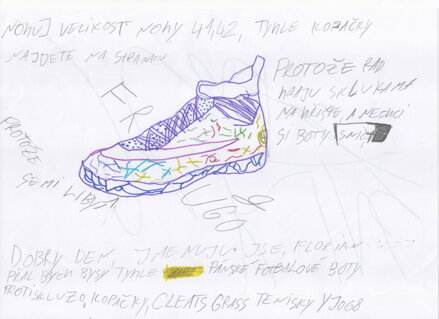 NOHU] VELIKOST NOHY, 41,42, TYHLE KOPAČKY
NAJDETE NA STRÁNKU
PROTOŽE RÁD
HRAJU S KLUKAMA
NA HŘIŠTE, A NECHCI
SI BOTY
F R
PROTOŽE
SE MI LIBYJA
DOBRY DEN, JMENUJU JSE, FLORIÁN
PŘÁL BYCH BYSY, TYHLE PÁNSKÉ FOTBALOVÉ BOTY
PROTISKLUZO, KOPAČKY, CLEATS GRASS TENISKY YJ068